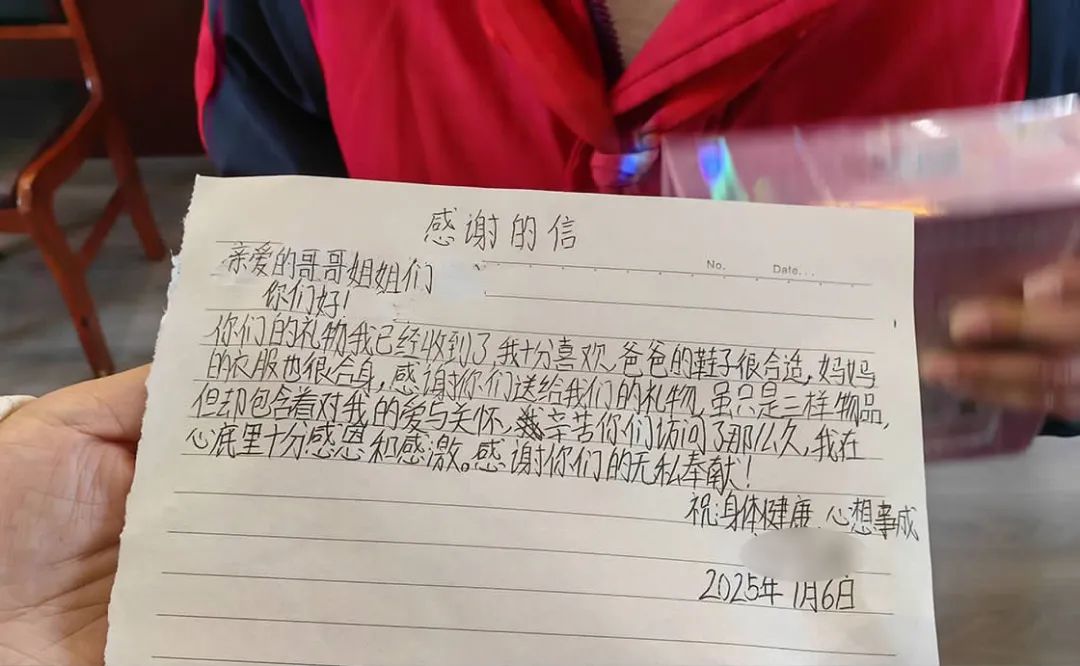 感谢的信
No. Date...
亲爱的哥哥姐姐们
你们好!
你们的礼物我已经收到了,我十分喜欢,爸爸的鞋子很合适,妈妈
的衣服也很合身,感谢你们送给我们的礼物,虽只是三样物品,
但却包含着对我的爱与关怀,辛苦你们访问了那么久,我在
心底里十分感恩和感激。感谢你们的无私奉献!
祝:身体健康、心想事成
2025年1月6日